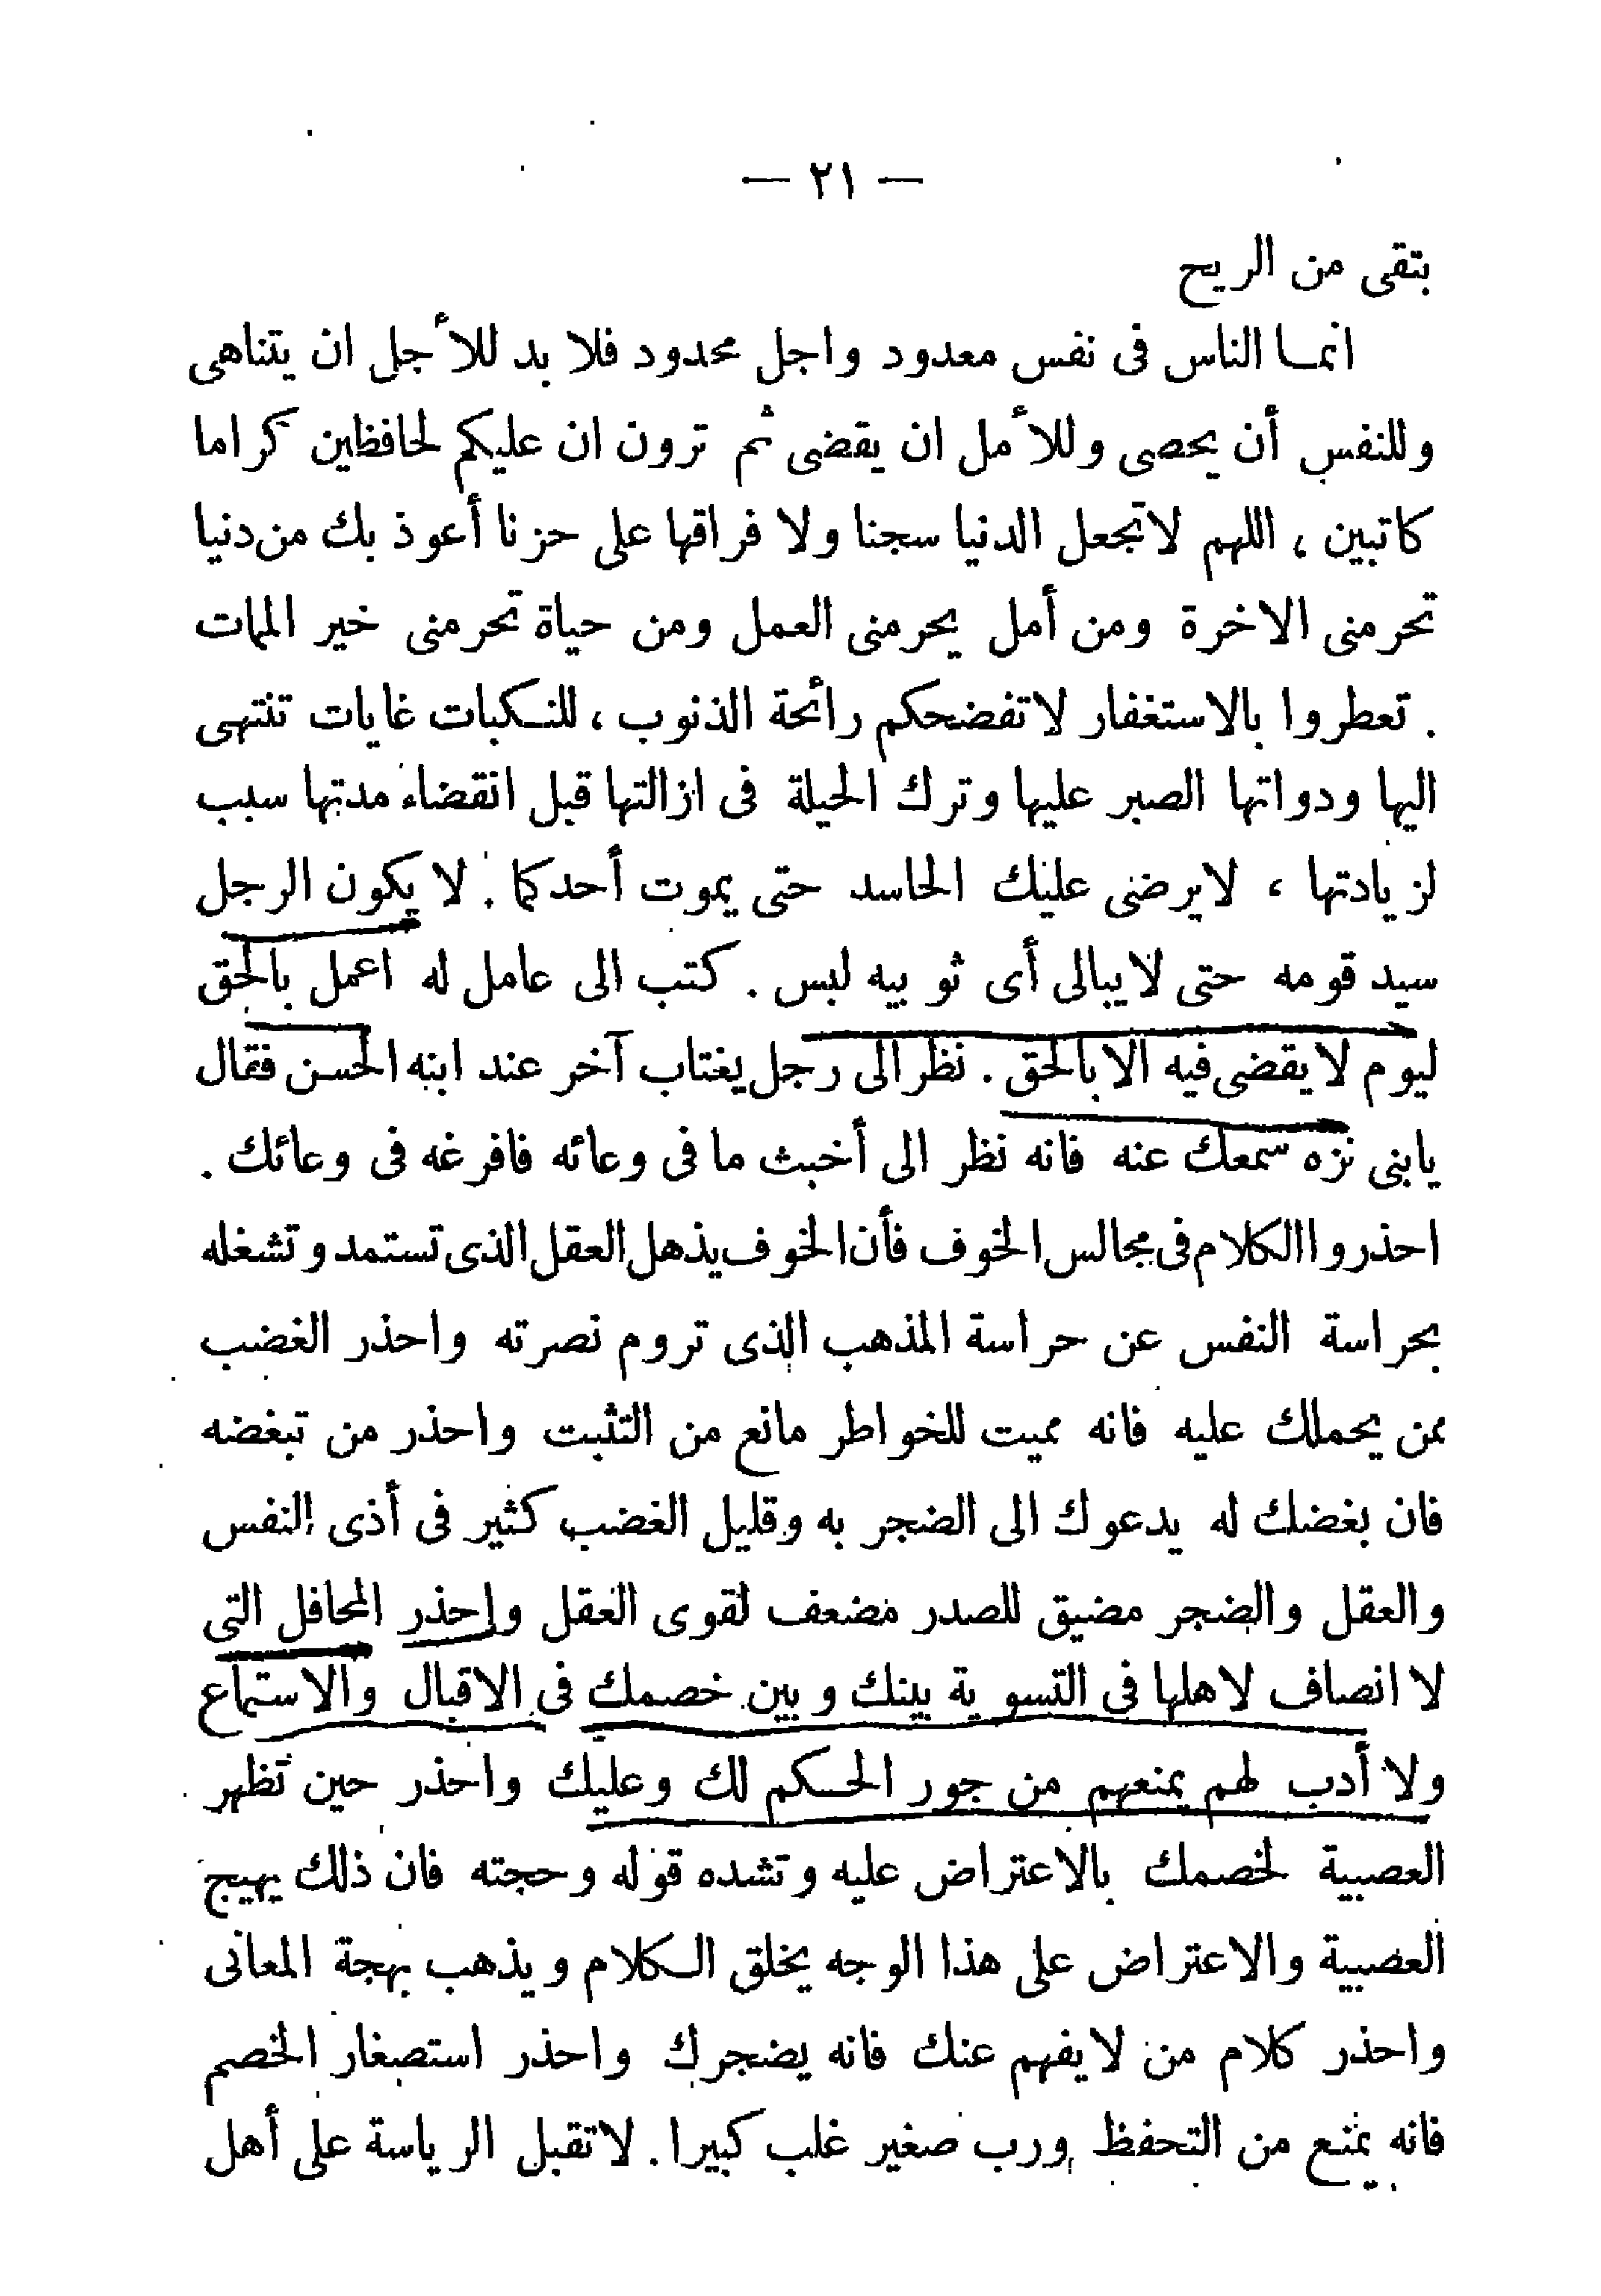 — ٢١ —
بتقى من الريح
انمـا الناس فى نفس معدود واجل محدود فلا بد للأجل ان يتناهى
وللنفس أن يحصى وللأمل ان يقضى ثم ترون ان عليكم لحافظين كراما
كاتبين ، اللهم لاتجعل الدنيا سجنا ولا فراقها على حزنا أعوذ بك من دنيا
تحرمنى الاخرة ومن أمل يحرمنى العمل ومن حياة تحرمنى خير الممات
. تعطروا بالاستغفار لاتفضحكم رائحة الذنوب ، للنـكبات غايات تنتهى
اليها ودواتها الصبر عليها وترك الحيلة فى ازالتها قبل انقضاء مدتها سبب
لزيادتها ، لايرضى عليك الحاسد حتى يموت أحدكما . لا يكون الرجل
سيد قومه حتى لايبالى أى ثوبيه لبس . كتب الى عامل له اعمل بالحق
ليوم لايقضى فيه الا بالحق . نظر الى رجل يغتاب آخر عند ابنه الحسن فقال
يابنى نزه سمعك عنه فانه نظر الى أخبث ما فى وعائه فافرغه فى وعائك .
احذروا الكلام فى مجالس الخوف فأن الخوف يذهل العقل الذى تستمد وتشغله
بحراسة النفس عن حراسة المذهب الذى تروم نصرته واحذر الغضب
ممن يحملك عليه فانه مميت للخواطر مانع من التثبت واحذر من تبغضه
فان بغضك له يدعوك الى الضجر به وقليل الغضب كثير فى أذى النفس
والعقل والضجر مضيق للصدر مضعف لقوى العقل واحذر المحافل التى
لا انصاف لاهلها فى التسوية بينك وبين خصمك فى الاقبال والاستماع
ولا أدب لهم يمنعهم من جور الحـكم لك وعليك واحذر حين تظهر
العصبية لخصمك بالاعتراض عليه وتشده قوله وحجته فان ذلك يهيج
العصبية والاعتراض على هذا الوجه يخلق الـكلام ويذهب بهجة المعانى
واحذر كلام من لايفهم عنك فانه يضجرك واحذر استصغار الخصم
فانه يمنع من التحفظ ورب صغير غلب كبيرا . لاتقبل الرياسة على أهل